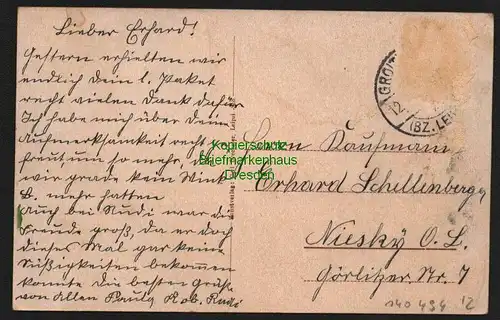 Lieber Erhard!
Gestern erhielten wir
endlich Dein l. Paket
recht vielen Dank dafür
Ich habe mich über Deine
Aufmerksamkeit recht ge-
freut um so mehr, da
wir grade kein
mehr hatten
Auch bei Rudi war die
Freude groß, da er doch
dieses Mal gar keine
Süßigkeiten bekommen
konnte Die besten Grüße
von Allen Paula, Rob. Rudi
Kopierschutz
Briefmarkenhaus
Dresden
GROI
(BZ. LEI
Herrn Kaufmann
Erhard Schellenberg
Niesky O. L.
Görlitzer Str. 7
140 494 12